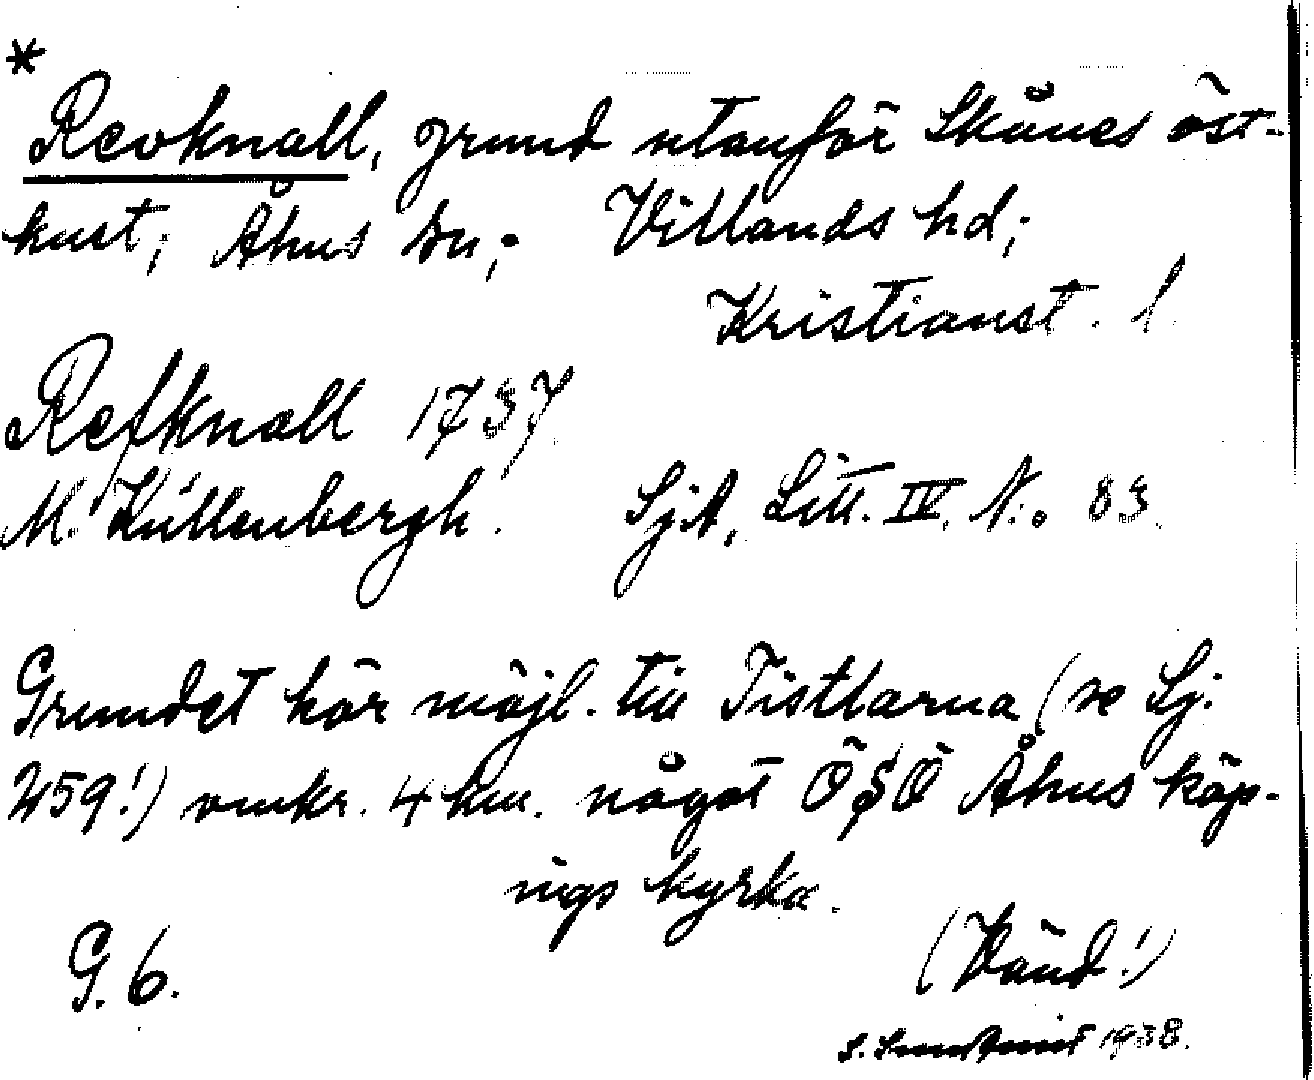 *
Revknall, grund utanför Skånes öst-
kust, Åhus sn; Villands hd;
Kristianst. l
Refknall 1737
M. Küllenbergh. SjA, Litt. IV, N:o 83.
Grundet hör möjl. till Tistlarna (se Sj.
259!) omkr. 4 km. något ÖSÖ Åhus köp-
ings kyrka.
(Vänd!)
G. 6.
S. 1938.